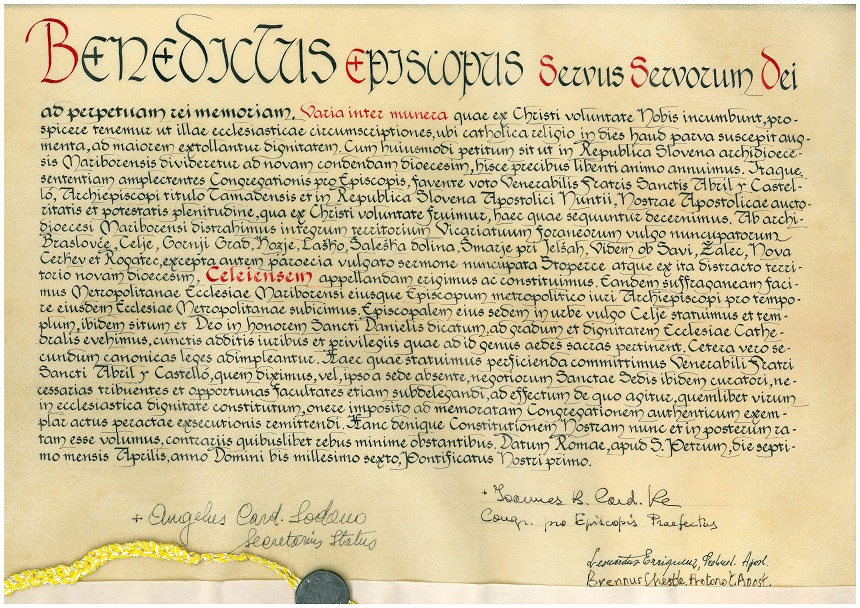 BENEDICTUS EPISCOPUS Servus Servorum Dei
ad perpetuam rei memoriam. Varia inter munera quae ex Christi voluntate Nobis incumbunt, pro-
spicere tenemur ut illae ecclesiasticae circumscriptiones, ubi catholica religio in dies haud parva suscepit aug-
menta, ad maiorem extollantur dignitatem. Cum huiusmodi petitum sit ut in Republica Slovena archidioece-
sis Mariborensis divideretur ad novam condendam dioecesim, hisce precibus libenti animo annuimus. Itaque,
sententiam amplectentes Congregationis pro Episcopis, favente voto Venerabilis Fratris Sanctis Abril y Castel-
ló, Archiepiscopi titulo Tamadensis et in Republica Slovena Apostolici Nuntii, Nostrae Apostolicae aucto-
ritatis et potestatis plenitudine, qua ex Christi voluntate fruimur, haec quae sequuntur decernimus. Ab archi-
dioecesi Mariborensi distrahimus integrum territorium Vicariatuum foraneorum vulgo nuncupatorum
Braslovče, Celje, Gornji Grad, Kozje, Laško, Šaleška dolina, Šmarje pri Jelšah, Videm ob Savi, Žalec, Nova
Cerkev et Rogatec, excepta autem paroecia vulgato sermone nuncupata Stoperce atque ex ita distracto terri-
torio novam dioecesim, Celeiensem appellandam erigimus ac constituimus. Eandem suffraganeam faci-
mus Metropolitanae Ecclesiae Mariborensi eiusque Episcopum metropolitico iuri Archiepiscopi pro tempo-
re eiusdem Ecclesiae Metropolitanae subicimus. Episcopalem eius sedem in urbe vulgo Celje statuimus et tem-
plum, ibidem situm et Deo in honorem Sancti Danielis dicatum, ad gradum et dignitatem Ecclesiae Cathe-
dralis evehimus, cunctis additis iuribus et privilegiis quae ad id genus aedes sacras pertinent. Cetera vero se-
cundum canonicas leges adimpleantur. Haec quae statuimus perficienda committimus Venerabili Fratri
Sancti Abril y Castelló, quem diximus, vel, ipso a sede absente, negotiorum Sanctae Sedis ibidem curatori, ne-
cessarias tribuentes et opportunas facultates etiam subdelegandi, ad effectum de quo agitur, quemlibet virum
in ecclesiastica dignitate constitutum, onere imposito ad memoratam Congregationem authenticum exem-
plar actus peractae exsecutionis remittendi. Hanc denique Constitutionem Nostram nunc et in posterum ra-
tam esse volumus, contrariis quibuslibet rebus minime obstantibus. Datum Romae, apud S. Petrum, die septi-
mo mensis Aprilis, anno Domini bis millesimo sexto, Pontificatus Nostri primo.
+ Ioannes B. Card. Re
Congr. pro Episcopis Praefectus
+ Angelus Card. Sodano
Secretarius Status
Apost.
Brennus Apost.